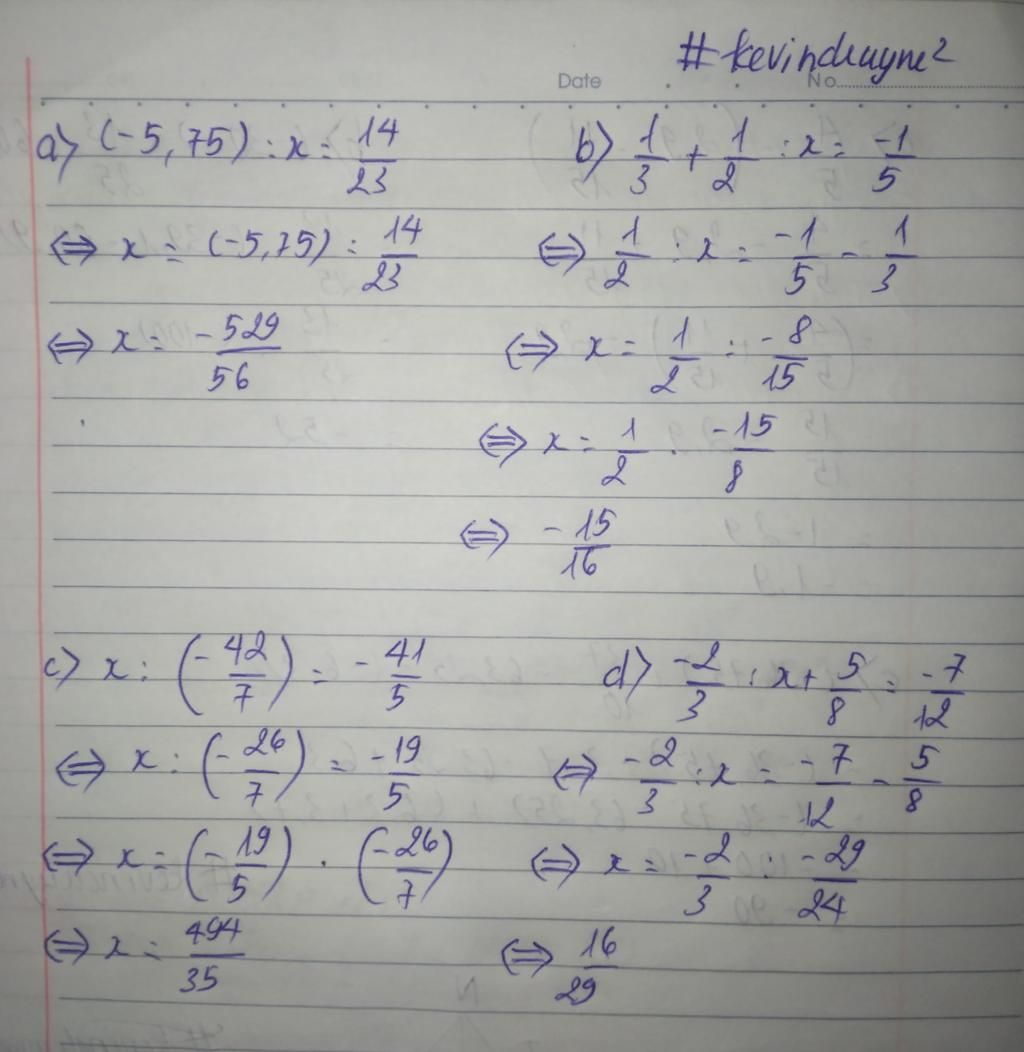 #kevindwayne²
Date No
a) (-5,75) : x = 14/23
⇔ x = (-5,75) : 14/23
⇔ x = -529/56
b) 1/3 + 1/2 : x = -1/5
⇔ 1/2 : x = -1/5 - 1/3
⇔ x = 1/2 : -8/15
⇔ x = 1/2 . -15/8
⇔ -15/16
c) x : (-42/7) = -41/5
⇔ x : (-26/7) = -19/5
⇔ x = (-19/5) . (-26/7)
⇔ x = 494/35
d) -2/3 : x + 5/8 = -7/12
⇔ -2/3 : x = -7/12 - 5/8
⇔ x = -2/3 : -29/24
⇔ 16/29